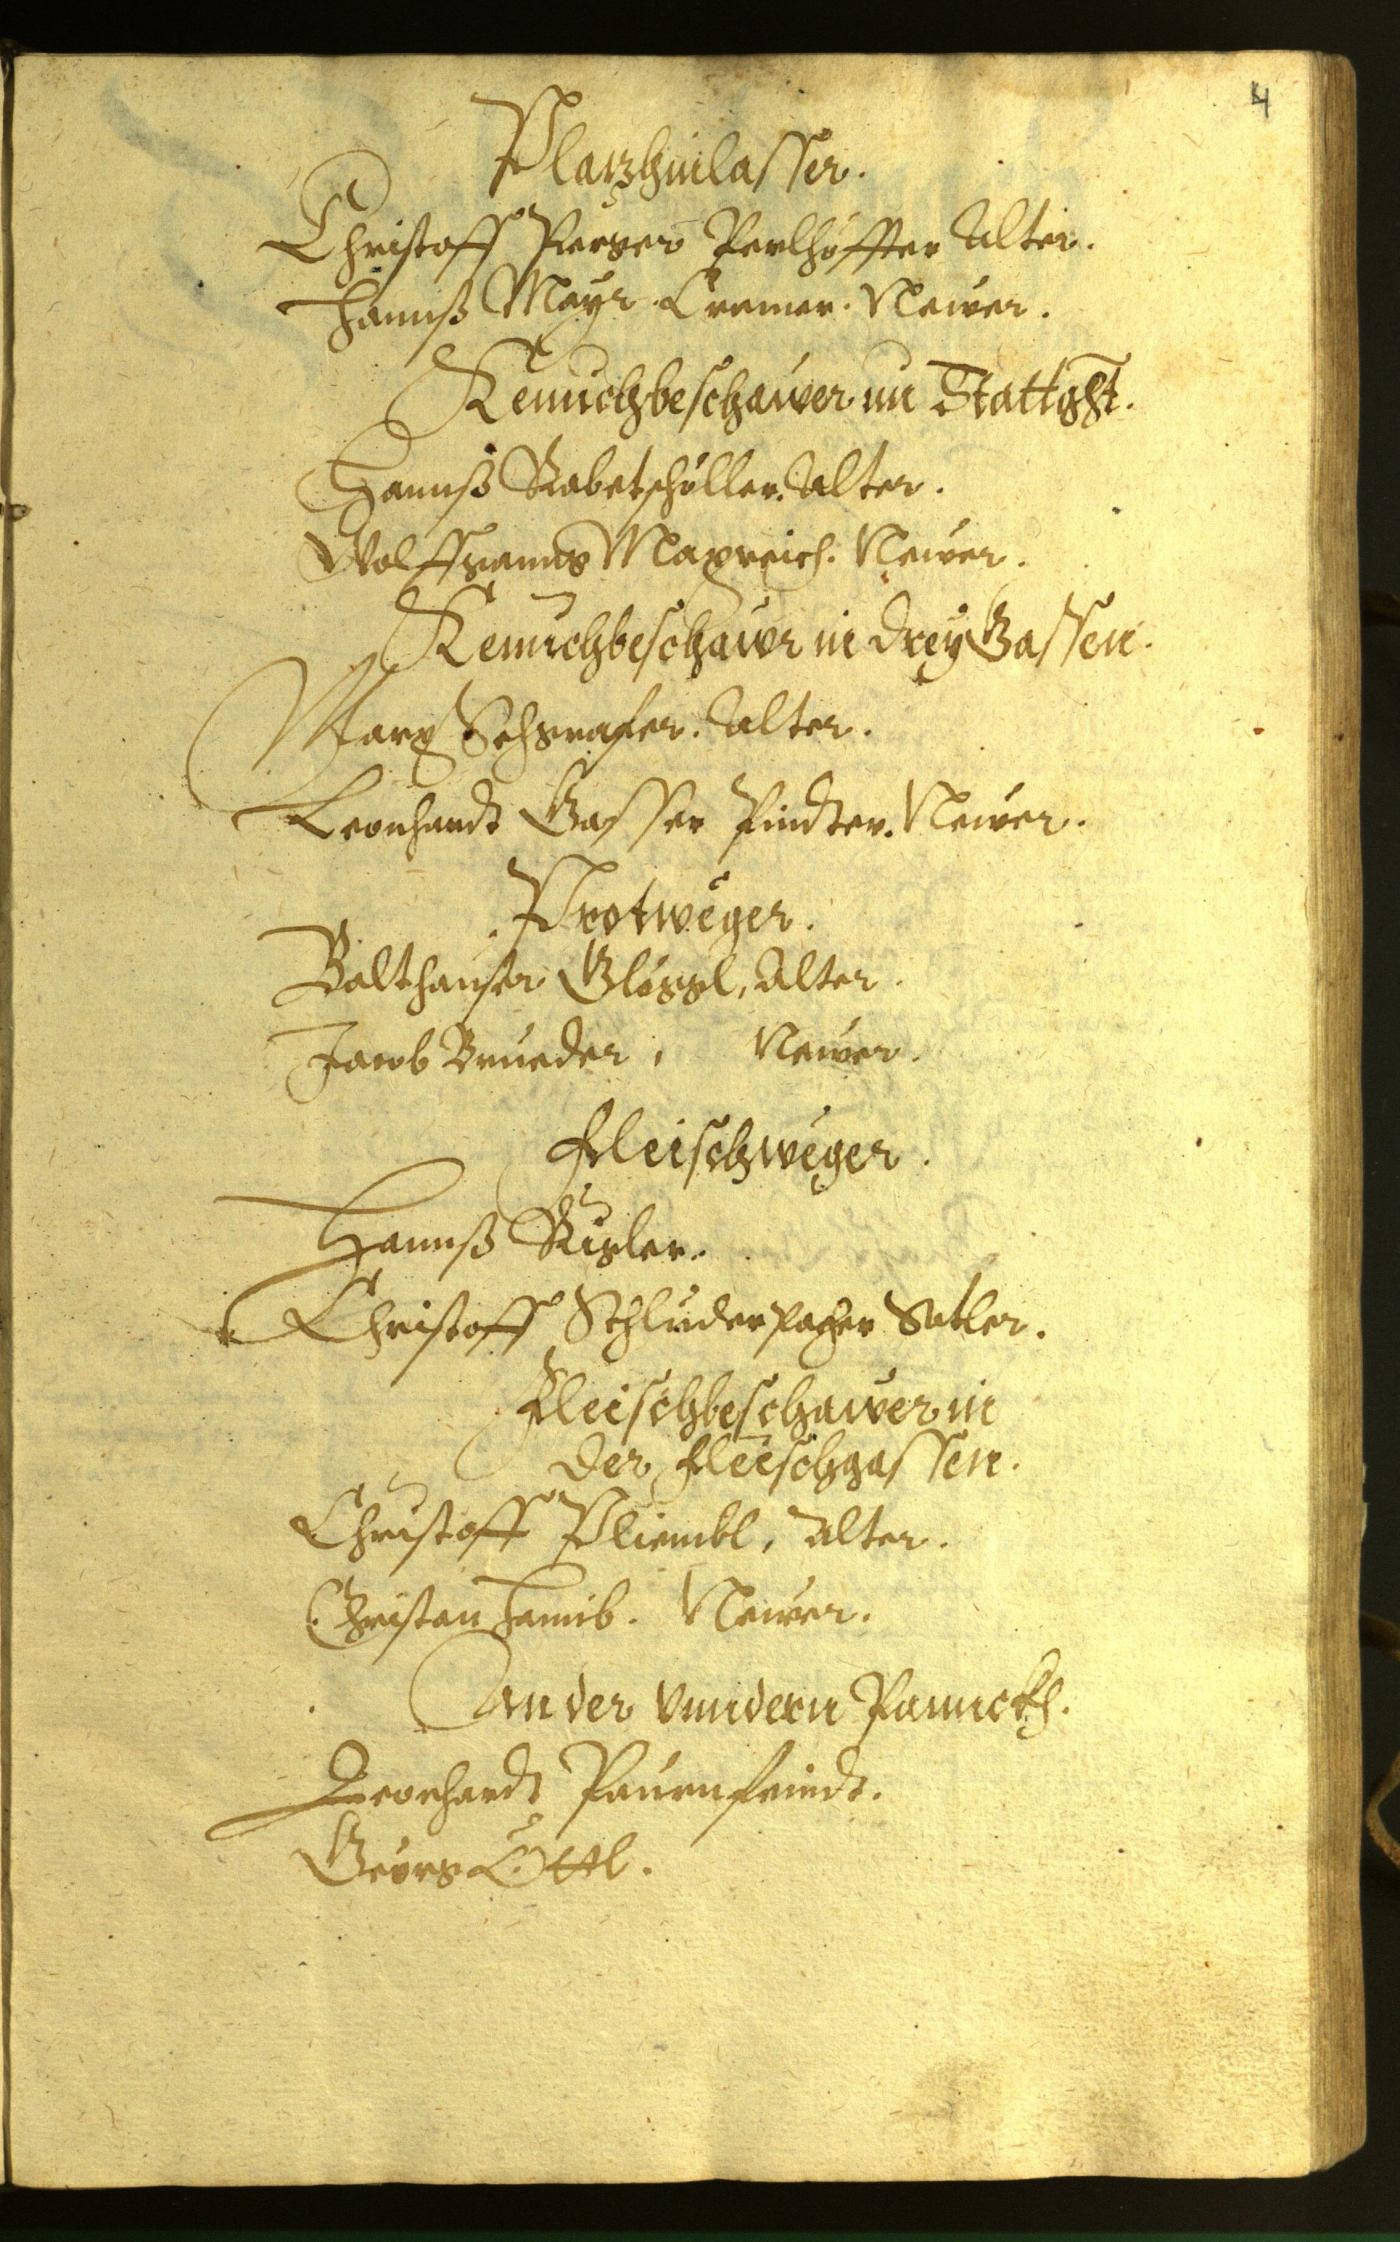 4
Plazhinlasser.
Christoff Perger Perlhöffter Alter.
Hannß Mayr Cramer. Newer.
Kemichbeschawer im Stattght.
Hannß Rabetschöller. Alter.
Wolffgang Mayreich. Newer.
Kemichbeschawr in drey Gassen.
Marx Schgrafer. Alter.
Leonhardt Gasser Pindter. Newer.
Protweger.
Balthauser Glöggl, Alter.
Jacob Brueder, Newer.
Fleischweger.
Hannß Rigler.
Christoff Schluderpacher Satler.
Fleischbeschawer in
der Fleischgassen.
Christoff Pliembl, Alter.
Christan Hamib. Newer.
An der Unndern Pannckh.
Leonhardt Paurnfeindt.
Georg Öttl.